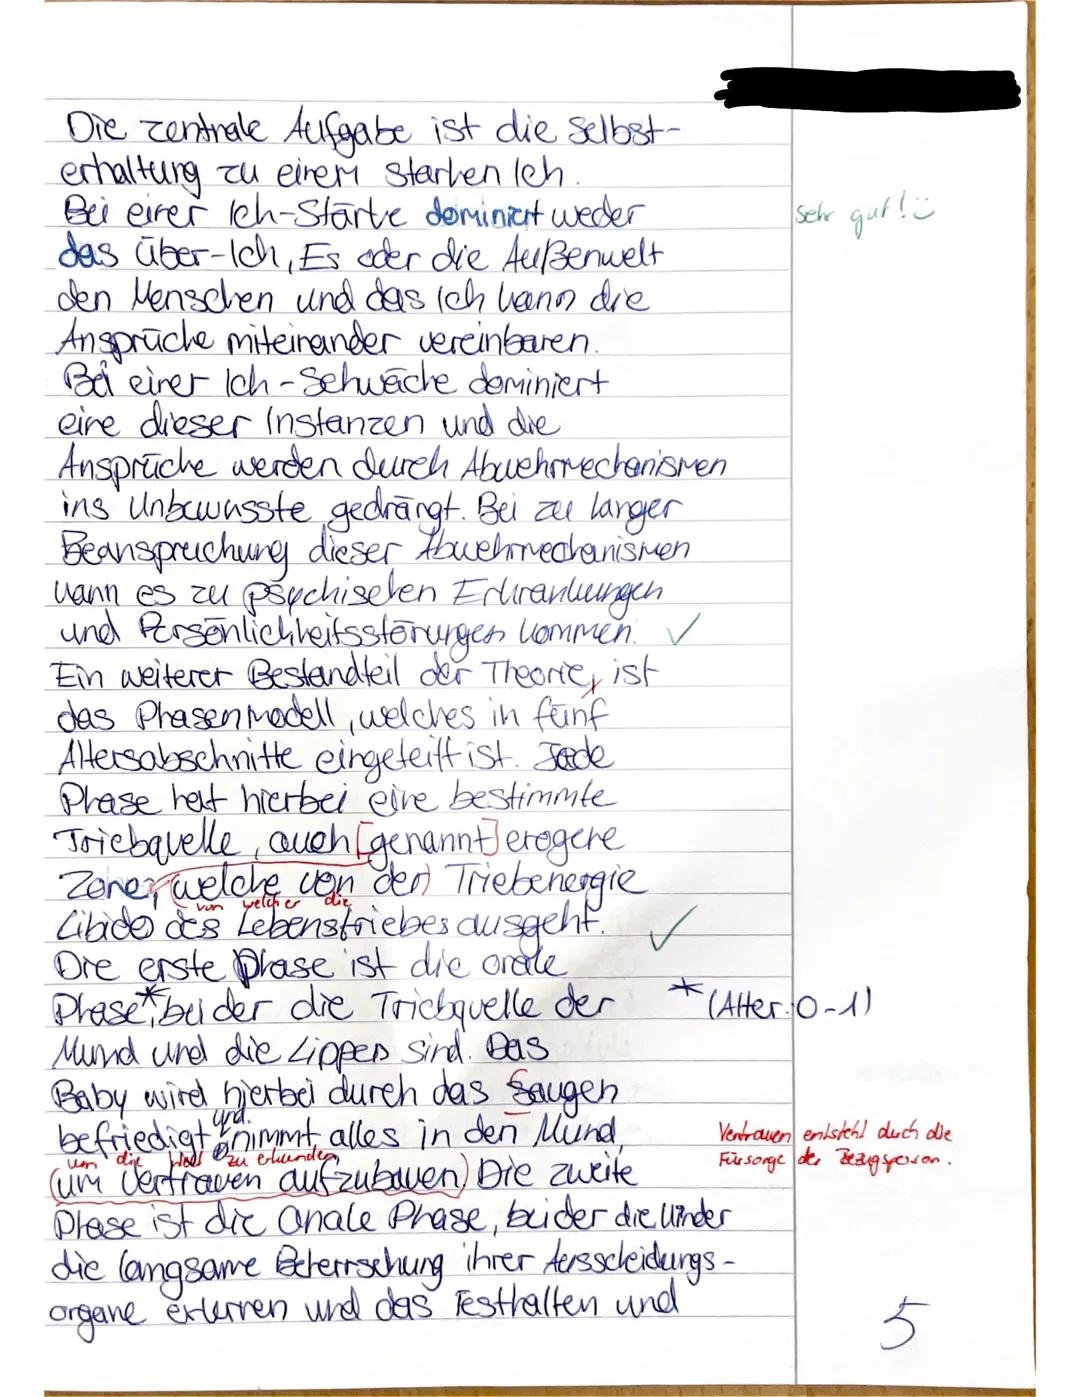 Die zentrale Aufgabe ist die Selbst-
erhaltung zu einem starken Ich.
Bei einer Ich-Stärke dominiert weder
sehr gut! :)
das Über-Ich, Es oder die Außenwelt
den Menschen und das Ich kann die
Ansprüche miteinander vereinbaren.
Bei einer Ich-Schwäche dominiert
eine dieser Instanzen und die
Ansprüche werden durch Abwehrmechanismen
ins Unbewusste gedrängt. Bei zu langer
Beanspruchung dieser Abwehrmechanismen
kann es zu psychischen Erkrankungen
und Persönlichkeitsstörungen kommen. ✓
Ein weiterer Bestandteil der Theorie, ist
das Phasenmodell, welches in fünf
Altersabschnitte eingeteilt ist. Jede
Phase hat hierbei eine bestimmte
Triebquelle, auch [genannt] erogene
Zone, welche von der Triebenergie
von welcher die
Libido des Lebenstriebes ausgeht. ✓
Die erste Phase ist die orale
Phase*, bei der die Triebquelle der
* (Alter: 0-1)
Mund und die Lippen sind. Das
Baby wird hierbei durch das Saugen
befriedigt und nimmt alles in den Mund,
um die Welt zu erkunden
(um Vertrauen aufzubauen) Die zweite
Vertrauen entsteht durch die
Fürsorge der Bezugsperson.
Phase ist die anale Phase, bei der die Kinder
die langsame Beherrschung ihrer Ausscheidungs-
organe erlernen und das Festhalten und
5